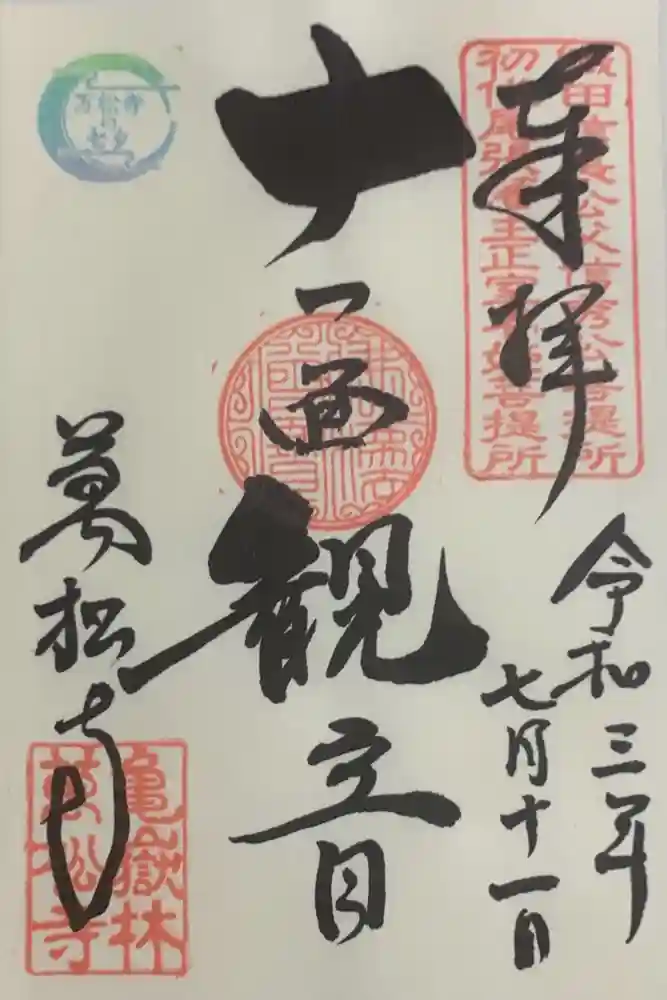 奉拝
令和三年
七月十一日
織田信長公父信秀公菩提所
初代尾張藩主正室春姫菩提所
十一面観音
萬松寺
亀嶽林
萬松寺
万松寺
の
七夕